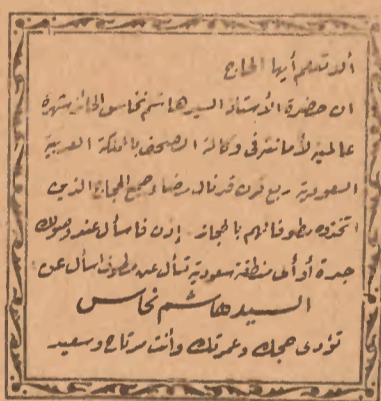 ألا تعلم أيها الحاج
ان حضرة الأستاذ السيد هاشم نحاس الحائز شهرة
عالمية لأمانته فى وكالة الصحف بالمملكة العربية
السعودية ربع قرن قد نال رضاء جميع الحجاج الذين
اتخذوه مطوفا لهم بالحجاز. إذن فاسأل عند وصولك
جدة أو أى منطقة سعودية تسأل عن مطوف اسأل عن
السيد هاشم نحاس
تؤدى حجك وعمرتك وأنت مرتاح وسعيد